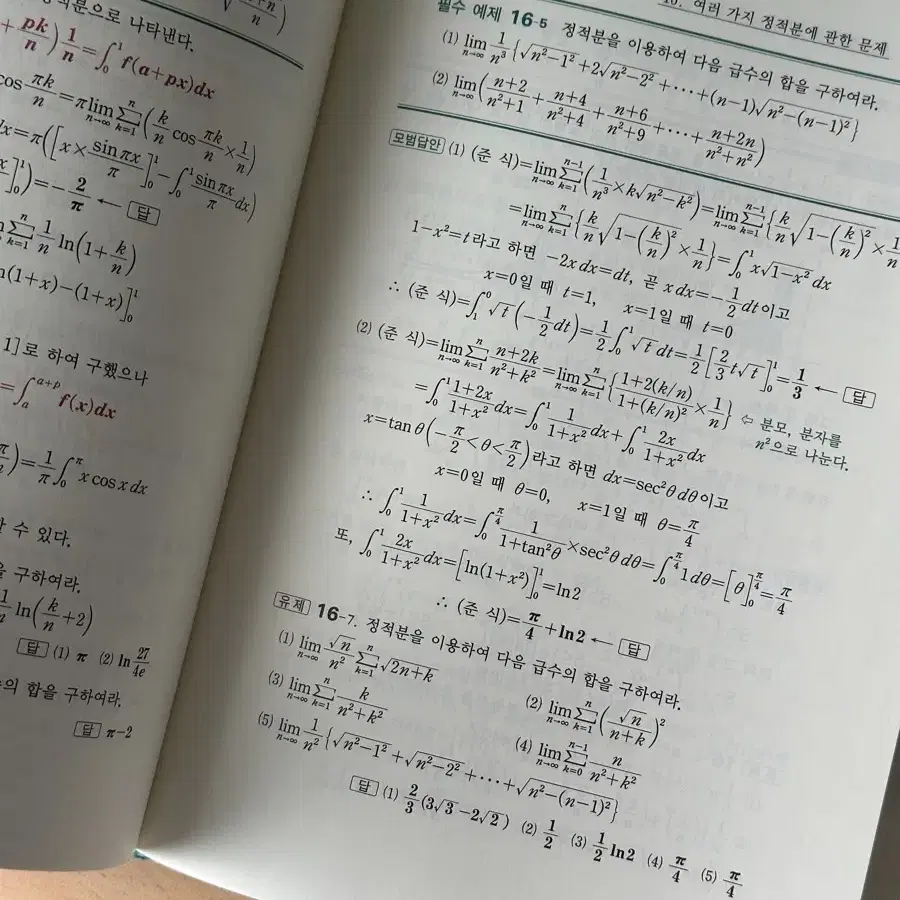 적분으로 나타낸다.
+ pk/n) 1/n = ∫₀¹ f(a+px)dx
cos πk/n = π lim_{n→∞} Σ_{k=1}^{n} (k/n cos πk/n × 1/n)
dx = π([x × sinπx/π]₀¹ − ∫₀¹ sinπx/π dx)
]₀¹) = −2/π ← 답
Σ_{k=1}^{n} 1/n ln(1+k/n)
(1+x)−(1+x)]₀¹
1]로 하여 구했으나
= ∫ₐ^{a+p} f(x)dx
) = 1/π ∫₀^π x cos x dx
수 있다.
구하여라.
ln(k/n + 2)
답 (1) π (2) ln 27/4e
의 합을 구하여라.
답 π−2
여러 가지 정적분에 관한 문제
필수 예제 16-5 정적분을 이용하여 다음 급수의 합을 구하여라.
(1) lim_{n→∞} 1/n³ {√(n²−1²) + 2√(n²−2²) + ⋯ + (n−1)√(n²−(n−1)²)}
(2) lim_{n→∞} ((n+2)/(n²+1) + (n+4)/(n²+4) + (n+6)/(n²+9) + ⋯ + (n+2n)/(n²+n²))
모범답안 (1) (준 식) = lim_{n→∞} Σ_{k=1}^{n−1} (1/n³ × k√(n²−k²)) = lim_{n→∞} Σ_{k=1}^{n−1} {k/n √(1−(k/n)²) × 1/n
= lim_{n→∞} Σ_{k=1}^{n} {k/n √(1−(k/n)²) × 1/n} = ∫₀¹ x√(1−x²) dx
1−x²=t라고 하면 −2x dx=dt, 곧 x dx=−1/2 dt이고
x=0일 때 t=1, x=1일 때 t=0
∴ (준 식) = ∫₁⁰ √t (−1/2 dt) = 1/2 ∫₀¹ √t dt = 1/2 [2/3 t√t]₀¹ = 1/3 ← 답
(2) (준 식) = lim_{n→∞} Σ_{k=1}^{n} (n+2k)/(n²+k²) = lim_{n→∞} Σ_{k=1}^{n} {(1+2(k/n))/(1+(k/n)²) × 1/n} ⇦ 분모, 분자를
n²으로 나눈다.
= ∫₀¹ (1+2x)/(1+x²) dx = ∫₀¹ 1/(1+x²) dx + ∫₀¹ 2x/(1+x²) dx
x=tan θ (−π/2 < θ < π/2)라고 하면 dx=sec²θ dθ이고
x=0일 때 θ=0, x=1일 때 θ=π/4
∴ ∫₀¹ 1/(1+x²) dx = ∫₀^{π/4} 1/(1+tan²θ) × sec²θ dθ = ∫₀^{π/4} 1 dθ = [θ]₀^{π/4} = π/4
또, ∫₀¹ 2x/(1+x²) dx = [ln(1+x²)]₀¹ = ln 2
∴ (준 식) = π/4 + ln 2 ← 답
유제 16-7. 정적분을 이용하여 다음 급수의 합을 구하여라.
(1) lim_{n→∞} √n/n² Σ_{k=1}^{n} √(2n+k)
(2) lim_{n→∞} Σ_{k=1}^{n} (√n/(n+k))²
(3) lim_{n→∞} Σ_{k=1}^{n} k/(n²+k²)
(4) lim_{n→∞} Σ_{k=0}^{n−1} n/(n²+k²)
(5) lim_{n→∞} 1/n² {√(n²−1²) + √(n²−2²) + ⋯ + √(n²−(n−1)²)}
답 (1) 2/3 (3√3−2√2) (2) 1/2 (3) 1/2 ln 2 (4) π/4 (5) π/4